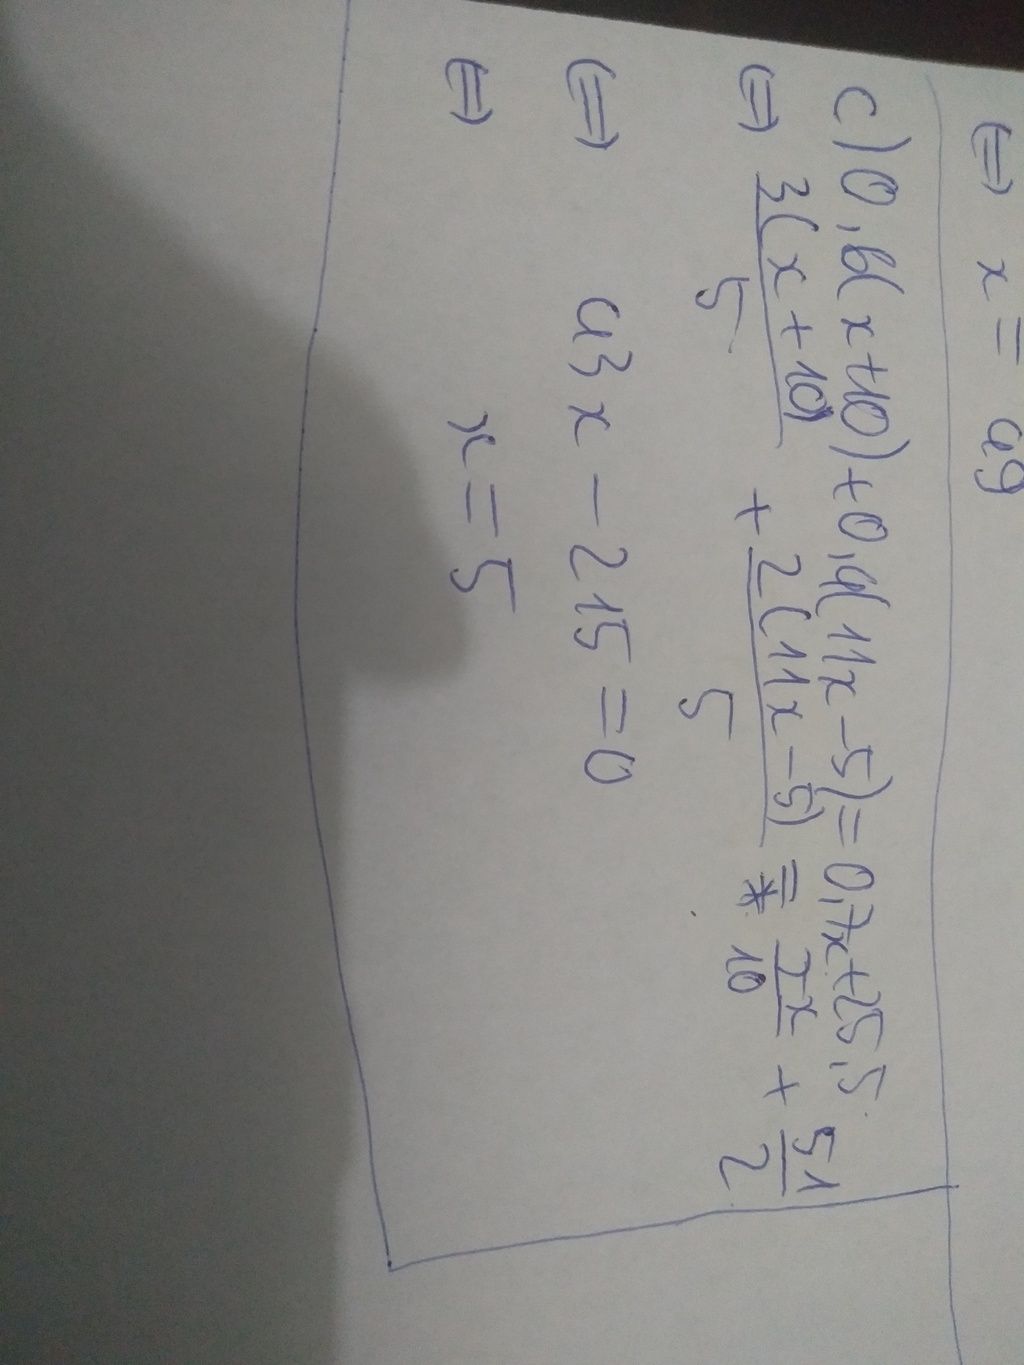 ⇔ x = 49
c) 0,6(x+10) + 0,4(11x-5) = 0,7x+25,5
⇔ 3(x+10)/5 + 2(11x-5)/5 = 7x/10 + 51/2
⇔ 43x - 215 = 0
⇔ x = 5